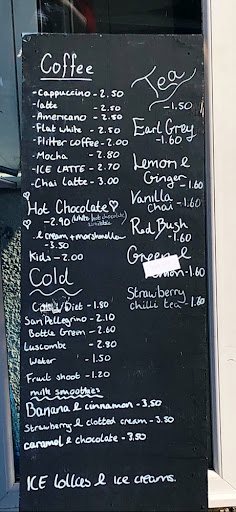 Coffee
-Cappuccino - 2.50
-latte - 2.50
-Americano - 2.50
-Flat white - 2.50
-Filter coffee - 2.00
-Mocha - 2.80
-ICE LATTE - 2.70
-Chai latte - 3.00
Hot Chocolate
- 2.90 (white hot chocolate)
& cream + marshmallow
- 3.50
Kids - 2.00
Cold
/Diet - 1.80
San Pellegrino - 2.10
Bottle Green - 2.60
Luscombe - 2.80
Water - 1.50
Fruit shoot - 1.20
milk smoothies
Banana & cinnamon - 3.50
Strawberry & clotted cream - 3.50
caramel & chocolate - 3.50
ICE lollies & ice creams.
Tea
-1.50
Earl Grey
-1.60
Lemon &
Ginger -1.60
Vanilla
Chai -1.60
Red Bush
-1.60
Green &
-1.60
Strawberry
chilli tea -1.60